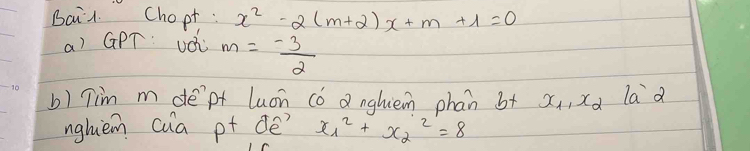 Bài 1. Cho pt: x² - 2(m+2)x + m + 1 = 0
a) GPT: với m = -3/2
b) Tìm m để pt luôn có 2 nghiệm phân bt x₁, x₂ là 2
nghiệm của pt để x₁² + x₂² = 8